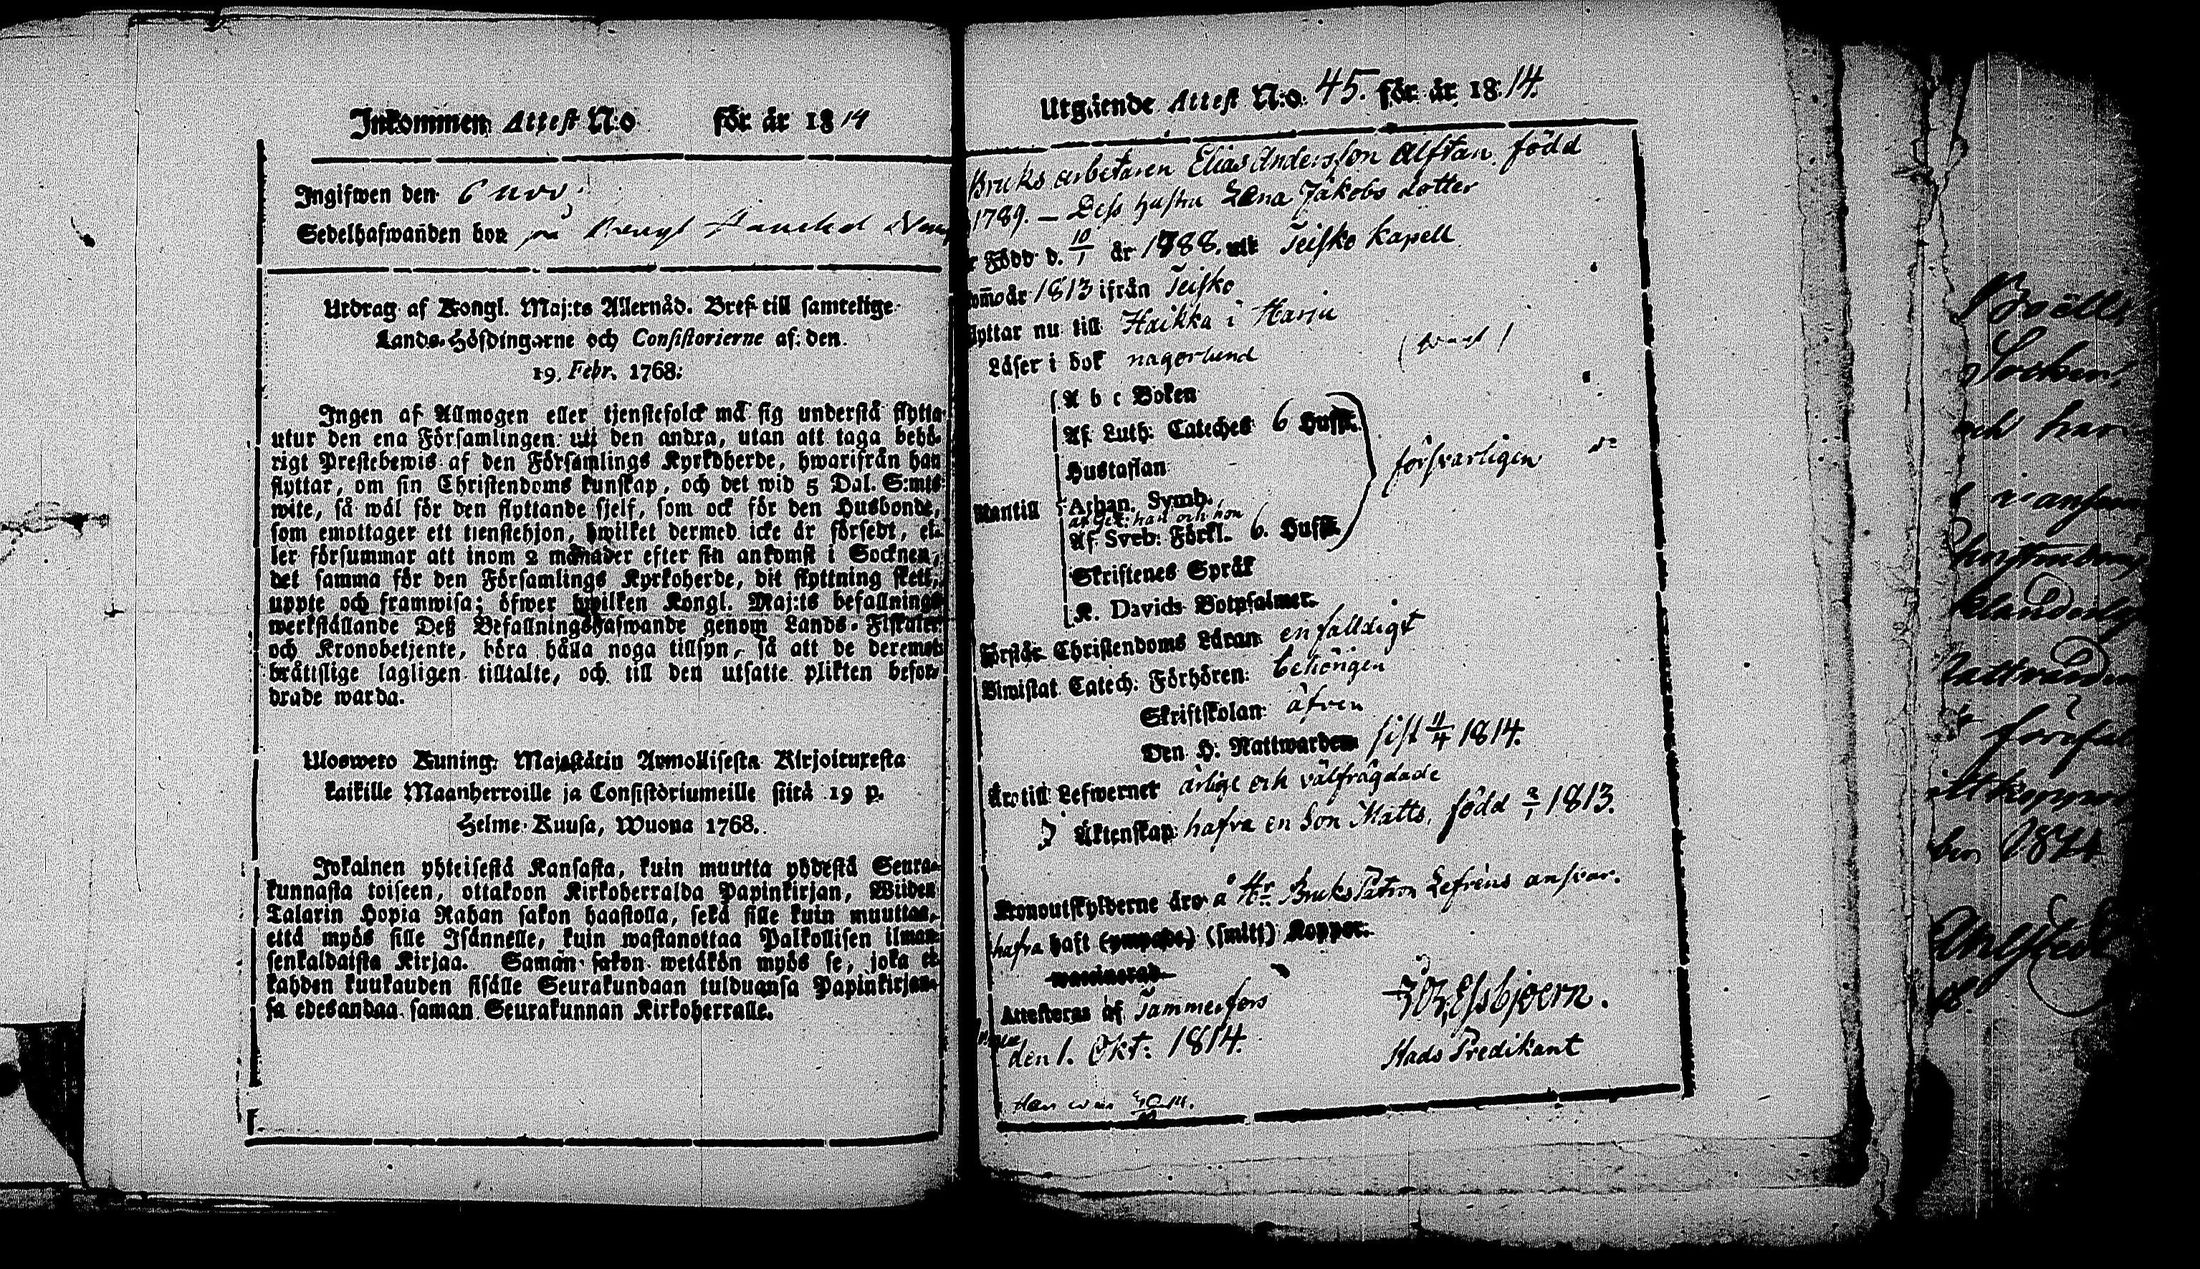 Inkommen Attest N:o för år 1814
Ingifwen den 6 nov:
Sedelhafwanden bor på
Utdrag af Kongl. Maj:ts Allernåd. Bref till samtelige
Lands-Höfdingarne och Consistorierne af den
19. Febr. 1768:
Ingen af Allmogen eller tjenstefolck må sig understå flytta
utur den ena Församlingen uti den andra, utan att taga behö-
rigt Prestebewis af den Församlings Kyrkoherde, hwarifrån han
flyttar, om sin Christendoms kunskap, och det wid 5 Dal. S:mts
wite, så wäl för den flyttande sjelf, som ock för den Husbonde,
som emottager ett tienstehjon, hwilket dermed icke är försedt, el-
ler försummar att inom 2 månader efter sin ankomst i Socknen,
det samma för den Församlings Kyrkoherde, dit flyttning skett,
uppte och framwisa; öfwer hwilken Kongl. Maj:ts befallnings
werkställande Deß Befallningshafwande genom Lands-Fiskaler
och Kronobetjente, böra hålla noga tillsyn, så att de deremot
bråttslige lagligen tilltalte, och till den utsatte plikten befor-
drade warda.
Ulosweto Kuning: Majestätin Armollisesta Kirjoituxesta
kaikille Maanherroille ja Consistöriumeille siitä 19 p.
Helme-Kuusa, Wuona 1768.
Jokainen yhteisestä Kansasta, kuin muutta yhdestä Seura-
kunnasta toiseen, ottakoon Kirkoherralda Papinkirjan, Wiiden
Talarin Hopia Rahan sakon haastolla, sekä sille kuin muuttaa,
että myös sille Isännelle, kuin wastanottaa Palkollisen ilman
senkaldaista Kirjaa. Saman sakon wetäkön myös se, joka ei
kahden kuukauden sisälle Seurakundaan tulduansa Papinkirjan-
sa edesandaa saman Seurakunnan Kirkoherralle.
Utgående Attest N:o 45. för år 1814.
Bruks arbetaren Elias Andersson Alftan född
1789. — Dess hustru Lena Jakobs dotter
Född d. 10/1 år 1788. uti Teisko Kapell
år 1813 ifrån Teisko
flyttar nu till Haikka i Harju
Läser i bok någorlund
A b c Boken
Af Luth: Cateches 6 Hufst.
Hustaflan
försvarligen
Nantill Athan. Symb.
han och hon
Af Sveb: Förkl. 6. Hufst.
Skriftenes Språk
K. Davids Botpsalmer.
Förstår Christendoms Läran enfalldigt
Biwistat Catech: Förhören: behörigen
Skriftskolan: äfven
Den H: Nattwarden sist 11/4 1814.
Äro till Lefwernet ärlige och välfrägdade
I Äktenskap: hafva en Son Matts, född 2/1 1813.
Kronoutskylderne äro å Hr Bruks Patron Lefrens ansvar.
hafva haft (ympade) (smitt) Koppor.
waccinerad
Attesteras af Tammerfors
den 1. Okt: 1814.
Essbjoern.
Stads Predikant